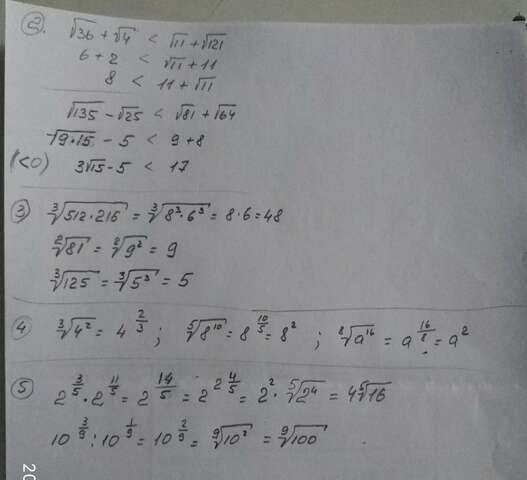 2. √36 + √4 < √11 + √121
6 + 2 < √11 + 11
8 < 11 + √11
√135 - √25 < √81 + √64
√9·15 - 5 < 9 + 8
(<0) 3√15 - 5 < 17
3) ∛512·216 = ∛8³·6³ = 8·6 = 48
²√81 = ²√9² = 9
∛125 = ∛5³ = 5
4) ∛4² = 4^(2/3) ; ⁵√8¹⁰ = 8^(10/5) = 8² ; ⁸√a¹⁶ = a^(16/8) = a²
5) 2^(3/5) · 2^(11/5) = 2^(14/5) = 2^(2 4/5) = 2² · ⁵√2⁴ = 4⁵√16
10^(3/9) : 10^(1/9) = 10^(2/9) = ⁹√10² = ⁹√100
20